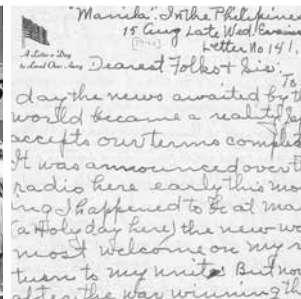 "Manila". In the Philippines
15 Aug Late Wed. Evening
[1945]
Letter No 141
A Letter a Day
to Loved Ones Away
Dearest Folks & Sis: To
day the news awaited by th
world became a reality Jap
accepts our terms comple
It was announced over t
radio here early this mo
ing I happened to be at mas
(a Holyday here) the news wa
most welcome on my r
turn to my unit. But now
after the war winning th